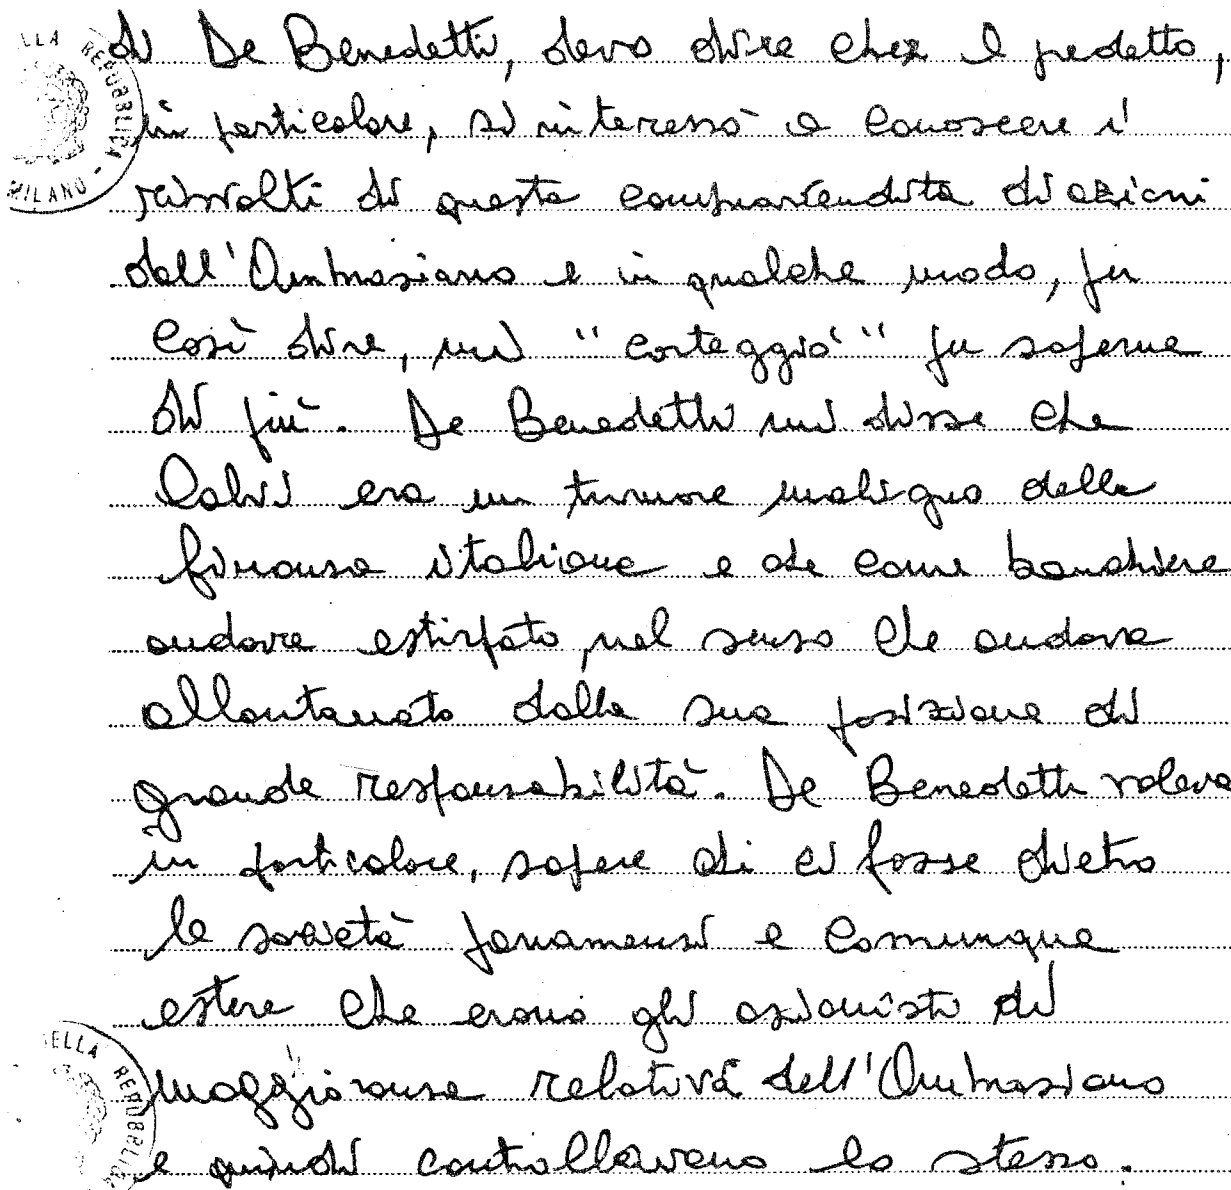 di De Benedetti, devo dire che il predetto,
in particolare, si interessò a conoscere i
risvolti di questa compravendita di azioni
dell'Ambrosiano e in qualche modo, per
così dire, mi "corteggiò" per saperne
di più. De Benedetti mi disse che
Calvi era un tumore maligno della
finanza italiana e che come banchiere
andava estirpato, nel senso che andava
allontanato dalla sua posizione di
grande responsabilità. De Benedetti voleva
in particolare, sapere chi ci fosse dietro
le società panamensi e comunque
estere che erano gli azionisti di
maggioranza relativa dell'Ambrosiano
e quindi controllavano lo stesso.
ELLA REPUBBLICA - MILANO -
ELLA REPUBBLICA